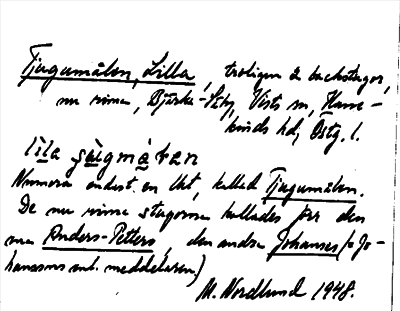 Tjugumålen, Lilla, troligen 2 backstugor,
nu rivna, Bjärka-Säby, Vists sn, Hane-
kinds hd, Östg. l.
lila şùgmå̀ɼan
Numera endast en lht, kallad Tjugumålen.
De nu rivna stugorna kallades förr den
ena Anders-Petters, den andra Johannes (=Jo-
hanssons enl. meddelaren.)
M. Nordlund 1948.